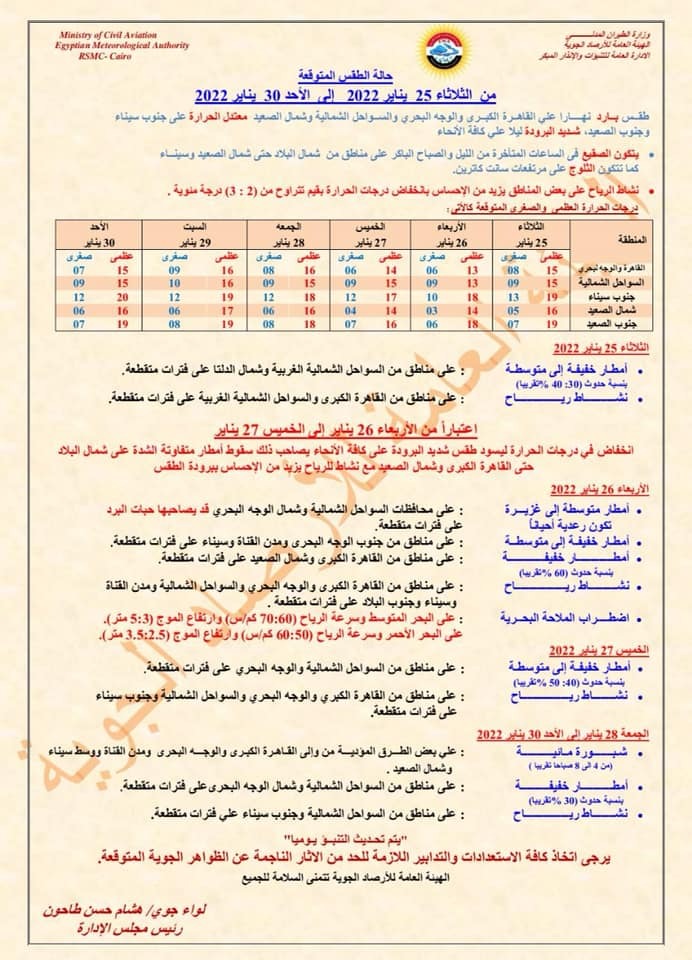 Ministry of Civil Aviation
Egyptian Meteorological Authority
RSMC- Cairo
وزارة الطيران المدنـــي
الهيئة العامة للأرصاد الجوية
الادارة العامة للتنبؤات والإنذار المبكر
حالة الطقس المتوقعة
من الثلاثاء 25 يناير 2022 إلى الأحد 30 يناير 2022
طقس بارد نهارا علي القاهرة الكبرى والوجه البحري والسواحل الشمالية وشمال الصعيد معتدل الحرارة على جنوب سيناء
وجنوب الصعيد، شديد البرودة ليلا علي كافة الأنحاء
يتكون الصقيع فى الساعات المتأخرة من الليل والصباح الباكر على مناطق من شمال البلاد حتى شمال الصعيد وسيناء
كما تتكون الثلوج على مرتفعات سانت كاترين.
نشاط الرياح على بعض المناطق يزيد من الإحساس بانخفاض درجات الحرارة بقيم تتراوح من (2 : 3) درجة مئوية .
درجات الحرارة العظمي والصغرى المتوقعة كالأتي:
المنطقة الثلاثاء الأربعاء الخميس الجمعه السبت الأحد
25 يناير 26 يناير 27 يناير 28 يناير 29 يناير 30 يناير
عظمى صغرى عظمى صغرى عظمى صغرى عظمى صغرى عظمى صغرى عظمى صغرى
القاهره والوجه لبحري 15 08 13 06 14 06 16 08 16 09 15 07
السواحل الشمالية 15 09 13 09 15 09 15 09 16 10 15 09
جنوب سيناء 19 13 18 10 17 12 18 12 19 12 20 12
شمال الصعيد 16 05 14 03 14 04 16 06 17 06 16 06
جنوب الصعيد 19 07 18 06 16 07 18 08 19 08 19 07
الثلاثاء 25 يناير 2022
أمطار خفيفة إلى متوسطة : على مناطق من السواحل الشمالية الغربية وشمال الدلتا على فترات متقطعة.
بنسبة حدوث (30: 40 %تقريبا)
نشـــاط ريـــاح : على مناطق من القاهرة الكبرى والسواحل الشمالية الغربية على فترات متقطعة.
اعتباراً من الأربعاء 26 يناير إلى الخميس 27 يناير
انخفاض في درجات الحرارة ليسود طقس شديد البرودة على كافة الأنحاء يصاحب ذلك سقوط أمطار متفاوتة الشدة على شمال البلاد
حتى القاهرة الكبرى وشمال الصعيد مع نشاط للرياح يزيد من الإحساس ببرودة الطقس
الأربعاء 26 يناير 2022
أمطار متوسطة إلى غزيـرة : على محافظات السواحل الشمالية وشمال الوجه البحري قد يصاحبها حبات البرد
تكون رعدية أحياناً على فترات متقطعة.
أمطار خفيفة إلى متوسطة : على مناطق من جنوب الوجه البحرى ومدن القناة وسيناء على فترات متقطعة.
أمطـــار خفيفـــة : على مناطق من القاهرة الكبرى وشمال الصعيد على فترات متقطعة.
بنسبة حدوث (60 %تقريبا)
نشـــاط ريـــاح : على مناطق من القاهرة الكبرى والوجه البحري والسواحل الشمالية ومدن القناة
وسيناء وجنوب البلاد على فترات متقطعة .
اضطـراب الملاحة البحرية : على البحر المتوسط وسرعة الرياح (70:60 كم/س) وارتفاع الموج (5:3 متر).
على البحر الأحمر وسرعة الرياح (60:50 كم/س) وارتفاع الموج (3.5:2.5 متر).
الخميس 27 يناير 2022
أمطار خفيفة إلى متوسطة : على مناطق من السواحل الشمالية والوجه البحري على فترات متقطعة.
بنسبة حدوث (40: 50 %تقريبا)
نشـــاط ريـــاح : على مناطق من القاهرة الكبري والوجه البحري والسواحل الشمالية وجنوب سيناء
على فترات متقطعة.
الجمعة 28 يناير إلى الأحد 30 يناير 2022
شـــبورة مائيـــة : علي بعض الطرق المؤدية من وإلى القاهرة الكبرى والوجـه البحرى ومدن القناة ووسط سيناء
(من 4 الى 8 صباحا تقريبا ) وشمال الصعيد .
أمطـــار خفيفـــة : على مناطق من السواحل الشمالية وشمال الوجه البحرى على فترات متقطعة.
بنسبة حدوث (30 %تقريبا)
نشـــاط ريـــاح : على مناطق من السواحل الشمالية وجنوب سيناء علي فترات متقطعة.
"يتم تحديث التنبؤ يوميا"
يرجى اتخاذ كافة الاستعدادات والتدابير اللازمة للحد من الاثار الناجمة عن الظواهر الجوية المتوقعة.
الهيئة العامة للأرصاد الجوية تتمنى السلامة للجميع
لواء جوي/ هشام حسن طاحون
رئيس مجلس الإدارة